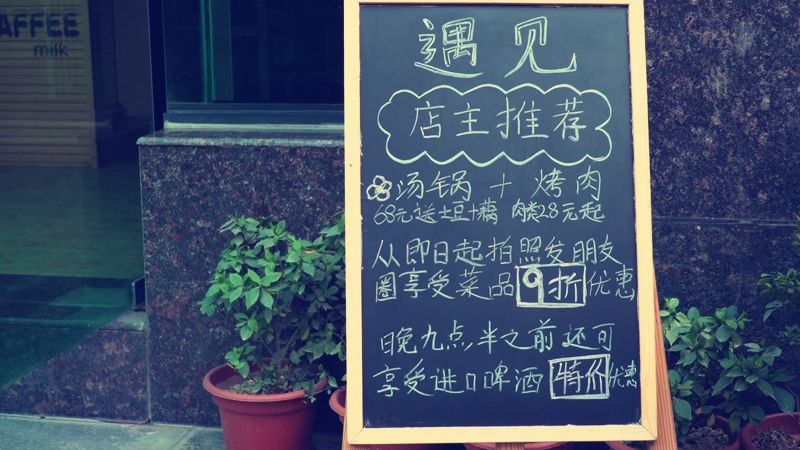 AFFEE
milk
遇见
店主推荐
汤锅 + 烤肉
68元送土豆+藕 肉类28元起
从即日起拍照发朋友
圈享受菜品9折优惠
晚九点半之前还可
享受进口啤酒特价优惠